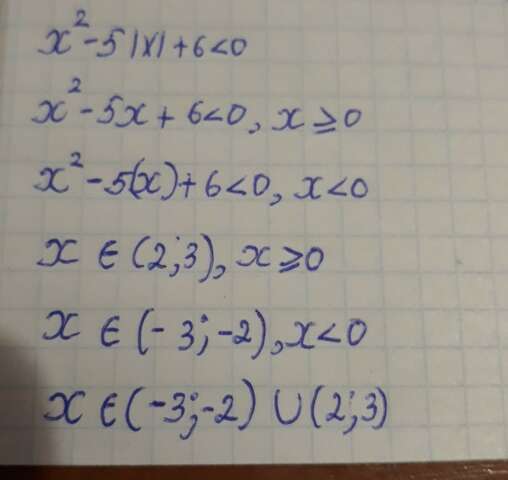 x² - 5|x| + 6 < 0
x² - 5x + 6 < 0, x ≥ 0
x² - 5(x) + 6 < 0, x < 0
x ∈ (2; 3), x ≥ 0
x ∈ (- 3; -2), x < 0
x ∈ (-3; -2) ∪ (2; 3)